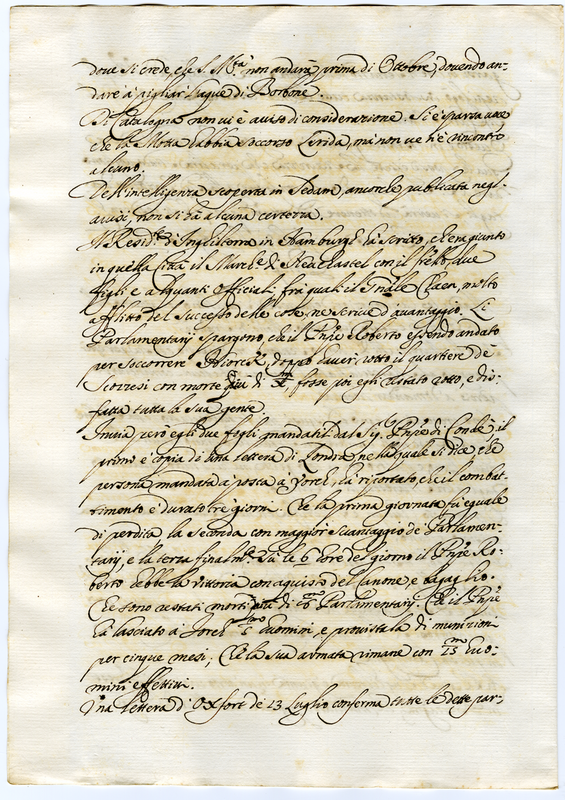 dove si crede, che S. M.tà non andarà prima di Ottobre, dovendo an-
dare à pigliar l'aque di Borbone.
Di Catalogna non vi è aviso di consideratione. Si è sparsa voce
che la Motta habbia soccorso Lerida, mà non ve n'è rincontro
alcuno.
Dell'intelligenza scoperta in Sedam, ancorche publicata negl'
avvisi, non si hà alcuna certezza.
Il Resid.te d'Inghilterra in Hamburgh hà scritto, ch'era giunto
in quella Città il March.e di Neuchastel con il fr'ello, due
figli e alquanti Officiali, frà quali il G'nale, molto
afflitto del successo delle cose, ne scrive d'avantaggio. Li
Parlamentarij spargono, che il Pn'pe Roberto essendo andato
per soccorrere, doppo haver rotto il quartiere de
Scozzesi con morte più di X.m fosse poi egli restato rotto, e dis-
fatta tutta la sua gente.
Invia però egli due fogli mandatili dal Sig.r Pn'pe di Condè, il
primo è copia di una lettera di Londra, nella quale si dice, che
persona mandata à posta à Yorch, hà riportato, che il combat-
timento è durato trè giorni. Che la prima giornata fù eguale
di perdita, la seconda con maggior svantaggio de Parlamen-
tarij, e la terza finalm.te sù le 6 hore del giorno il Pn'pe Ro-
berto hebbe la vittoria con aquisto del Canone, e bagaglio.
Che sono restati morti più di Parlamentarij. Che il Pn'pe
hà lasciato à Jorch huomini, e provistala di munitioni
per cinque mesi, Che la sua armata rimane con 15.m huo-
mini effettivi.
Una lettera d'Oxfort de 23 Luglio conferma tutte le dette par-